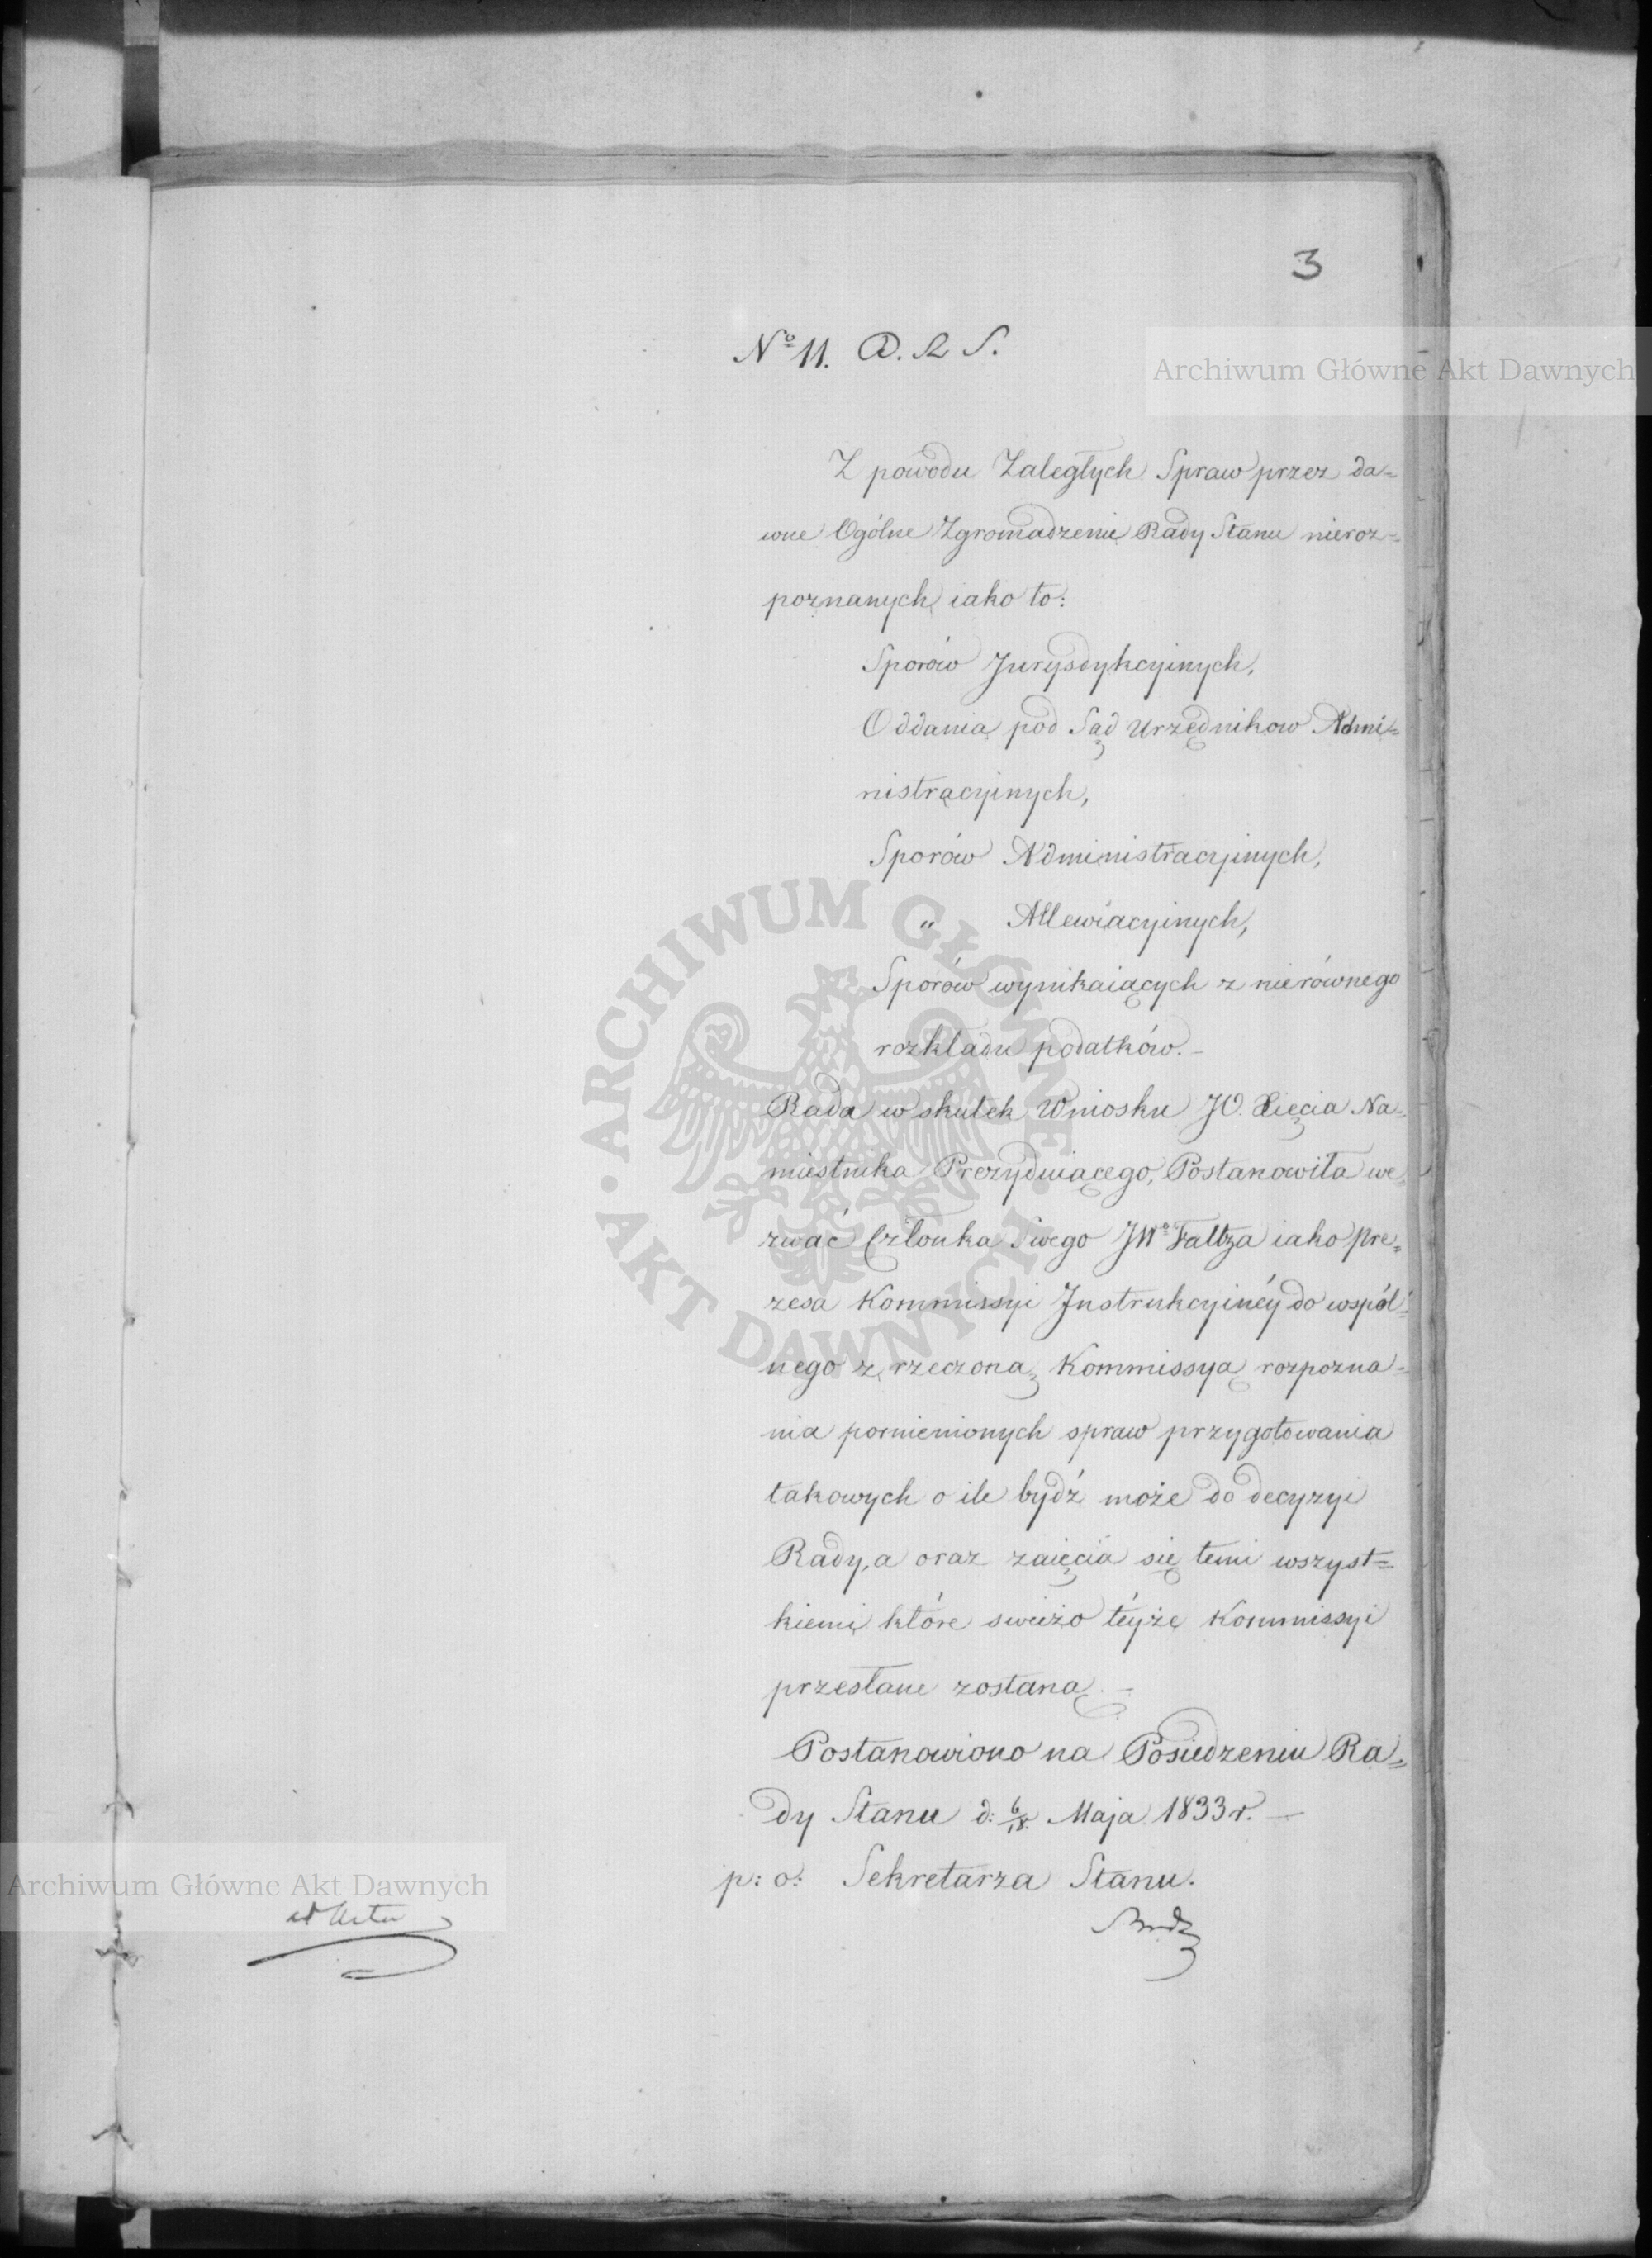 3
Nº 11. D. R S.
Archiwum Główne Akt Dawnych
Z powodu Zaległych Spraw przez da=
wne Ogólne Zgromadzenie Rady Stanu nieroz=
poznanych iako to:
Sporów Jurysdykcyinych,
Oddania pod Sąd Urzędnikow Admi=
nistracyinych,
Sporów Administracyinych,
" Allewiacyinych,
Sporów wynikaiących z nierównego
rozkładu podatków.—
Rada w skutek Wniosku JO. Xięcia Na=
miestnika Prezyduiącego, Postanowiła we=
zwać Członka Swego JWº Faltza iako Pre=
zesa Kommissyi Instrukcyinéy do wspól=
nego z rzeczoną Kommissyą rozpozna=
nia pomienionych spraw przygotowania
takowych o ile bydź może do decyzyi
Rady, a oraz zaięcia się temi wszyst=
kiemi które swieżo téyże Kommissyi
przesłane zostaną.—
Postanowiono na Posiedzeniu Ra=
dy Stanu d: 6/18 Maja 1833 r.—
p: o: Sekretarza Stanu.
Archiwum Główne Akt Dawnych
ad Acta
ARCHIWUM GŁÓWNE
AKT DAWNYCH